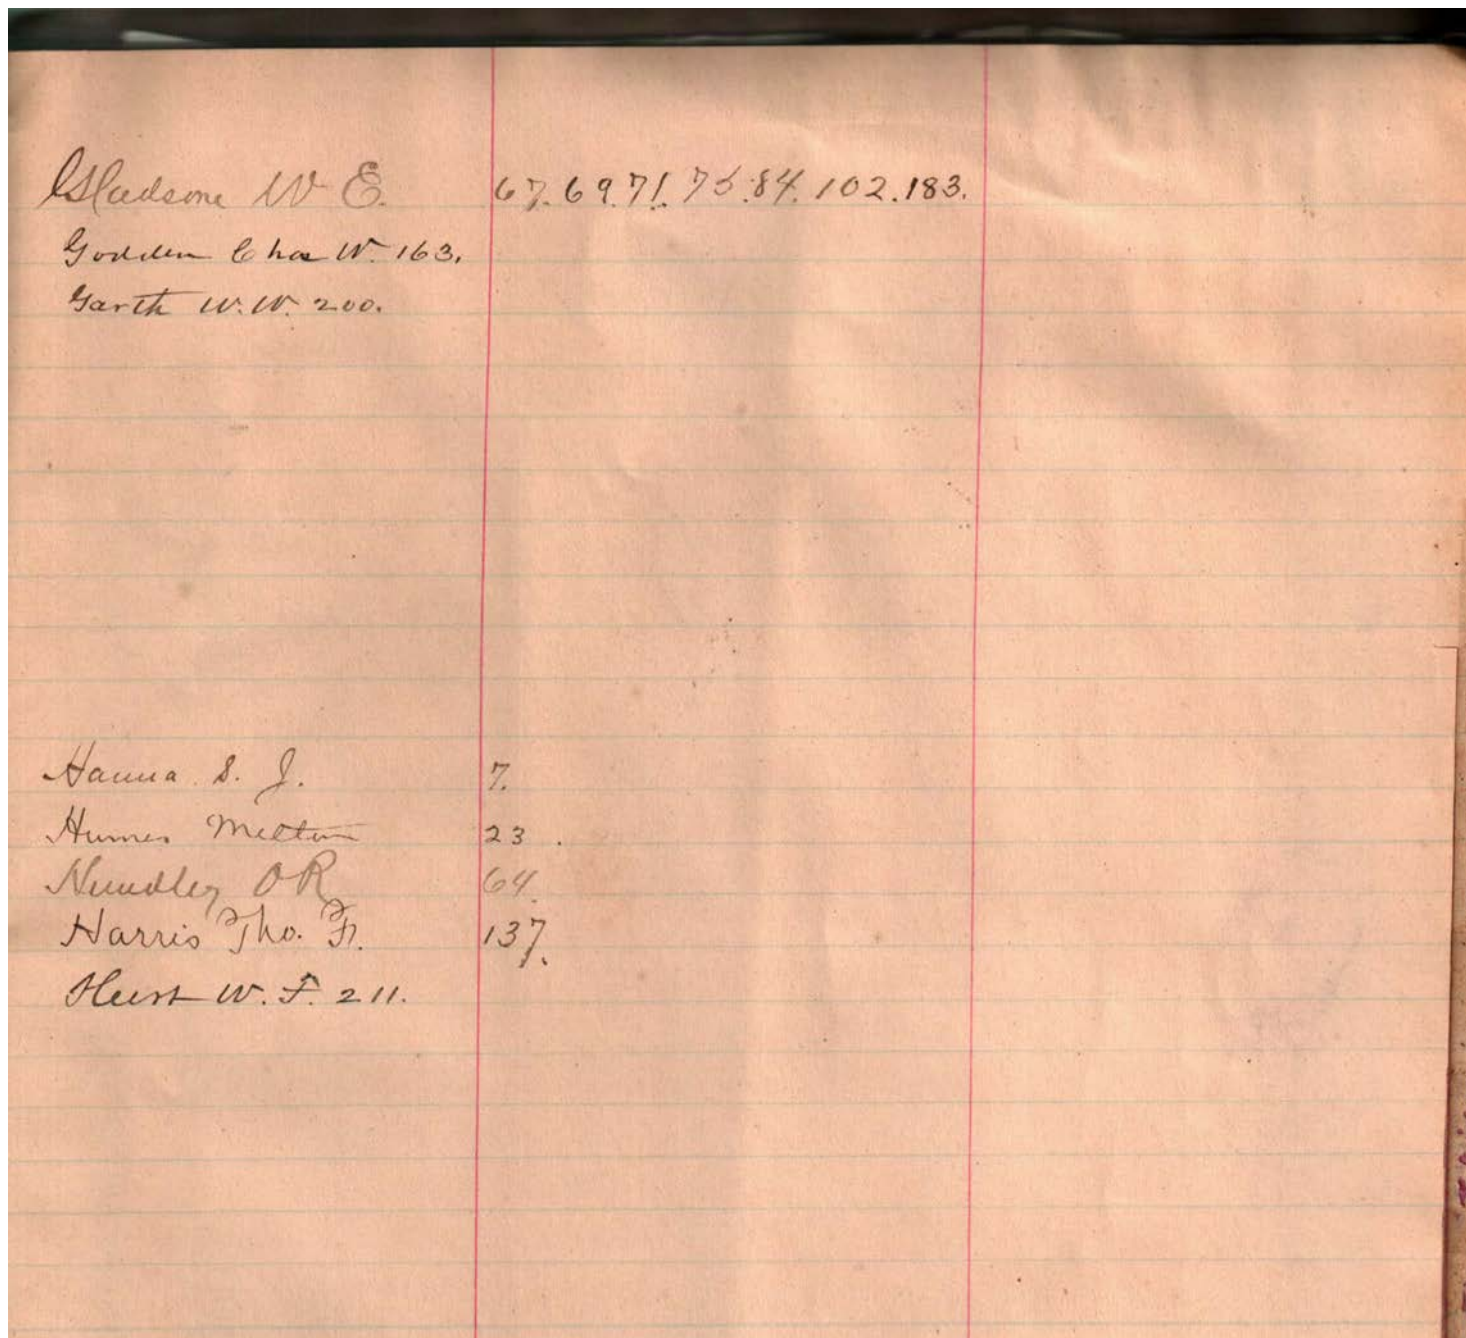 Gladsone W E. 67. 69. 71. 75. 84. 102. 183.
Godden Chas W. 163.
Garth W. W. 200.
Hanna S. J. 7.
Humes Milton 23.
Hundley O R 64.
Harris Tho. Fr. 137.
Hurst W. F. 211.